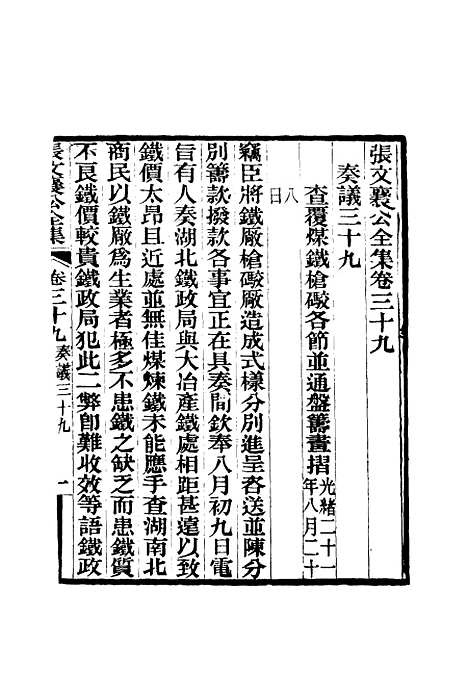 張文襄公全集卷三十九
奏議三十九
查覆煤鐵槍礮各節並通盤籌畫摺光緒二十一年八月二十
八日
竊臣將鐵廠槍礮廠造成式樣分別進呈咨送並陳分
別籌款撥款各事宜正在具奏間欽奉八月初九日電
旨有人奏湖北鐵政局與大冶產鐵處相距甚遠以致
鐵價太昂且近處並無佳煤煉鐵未能應手查湖南北
商民以鐵廠爲生業者極多不患鐵之缺乏而患鐵質
不良鐵價較貴鐵政局犯此二弊卽難收效等語鐵政
張文襄公全集 卷三十九 奏議三十九 一